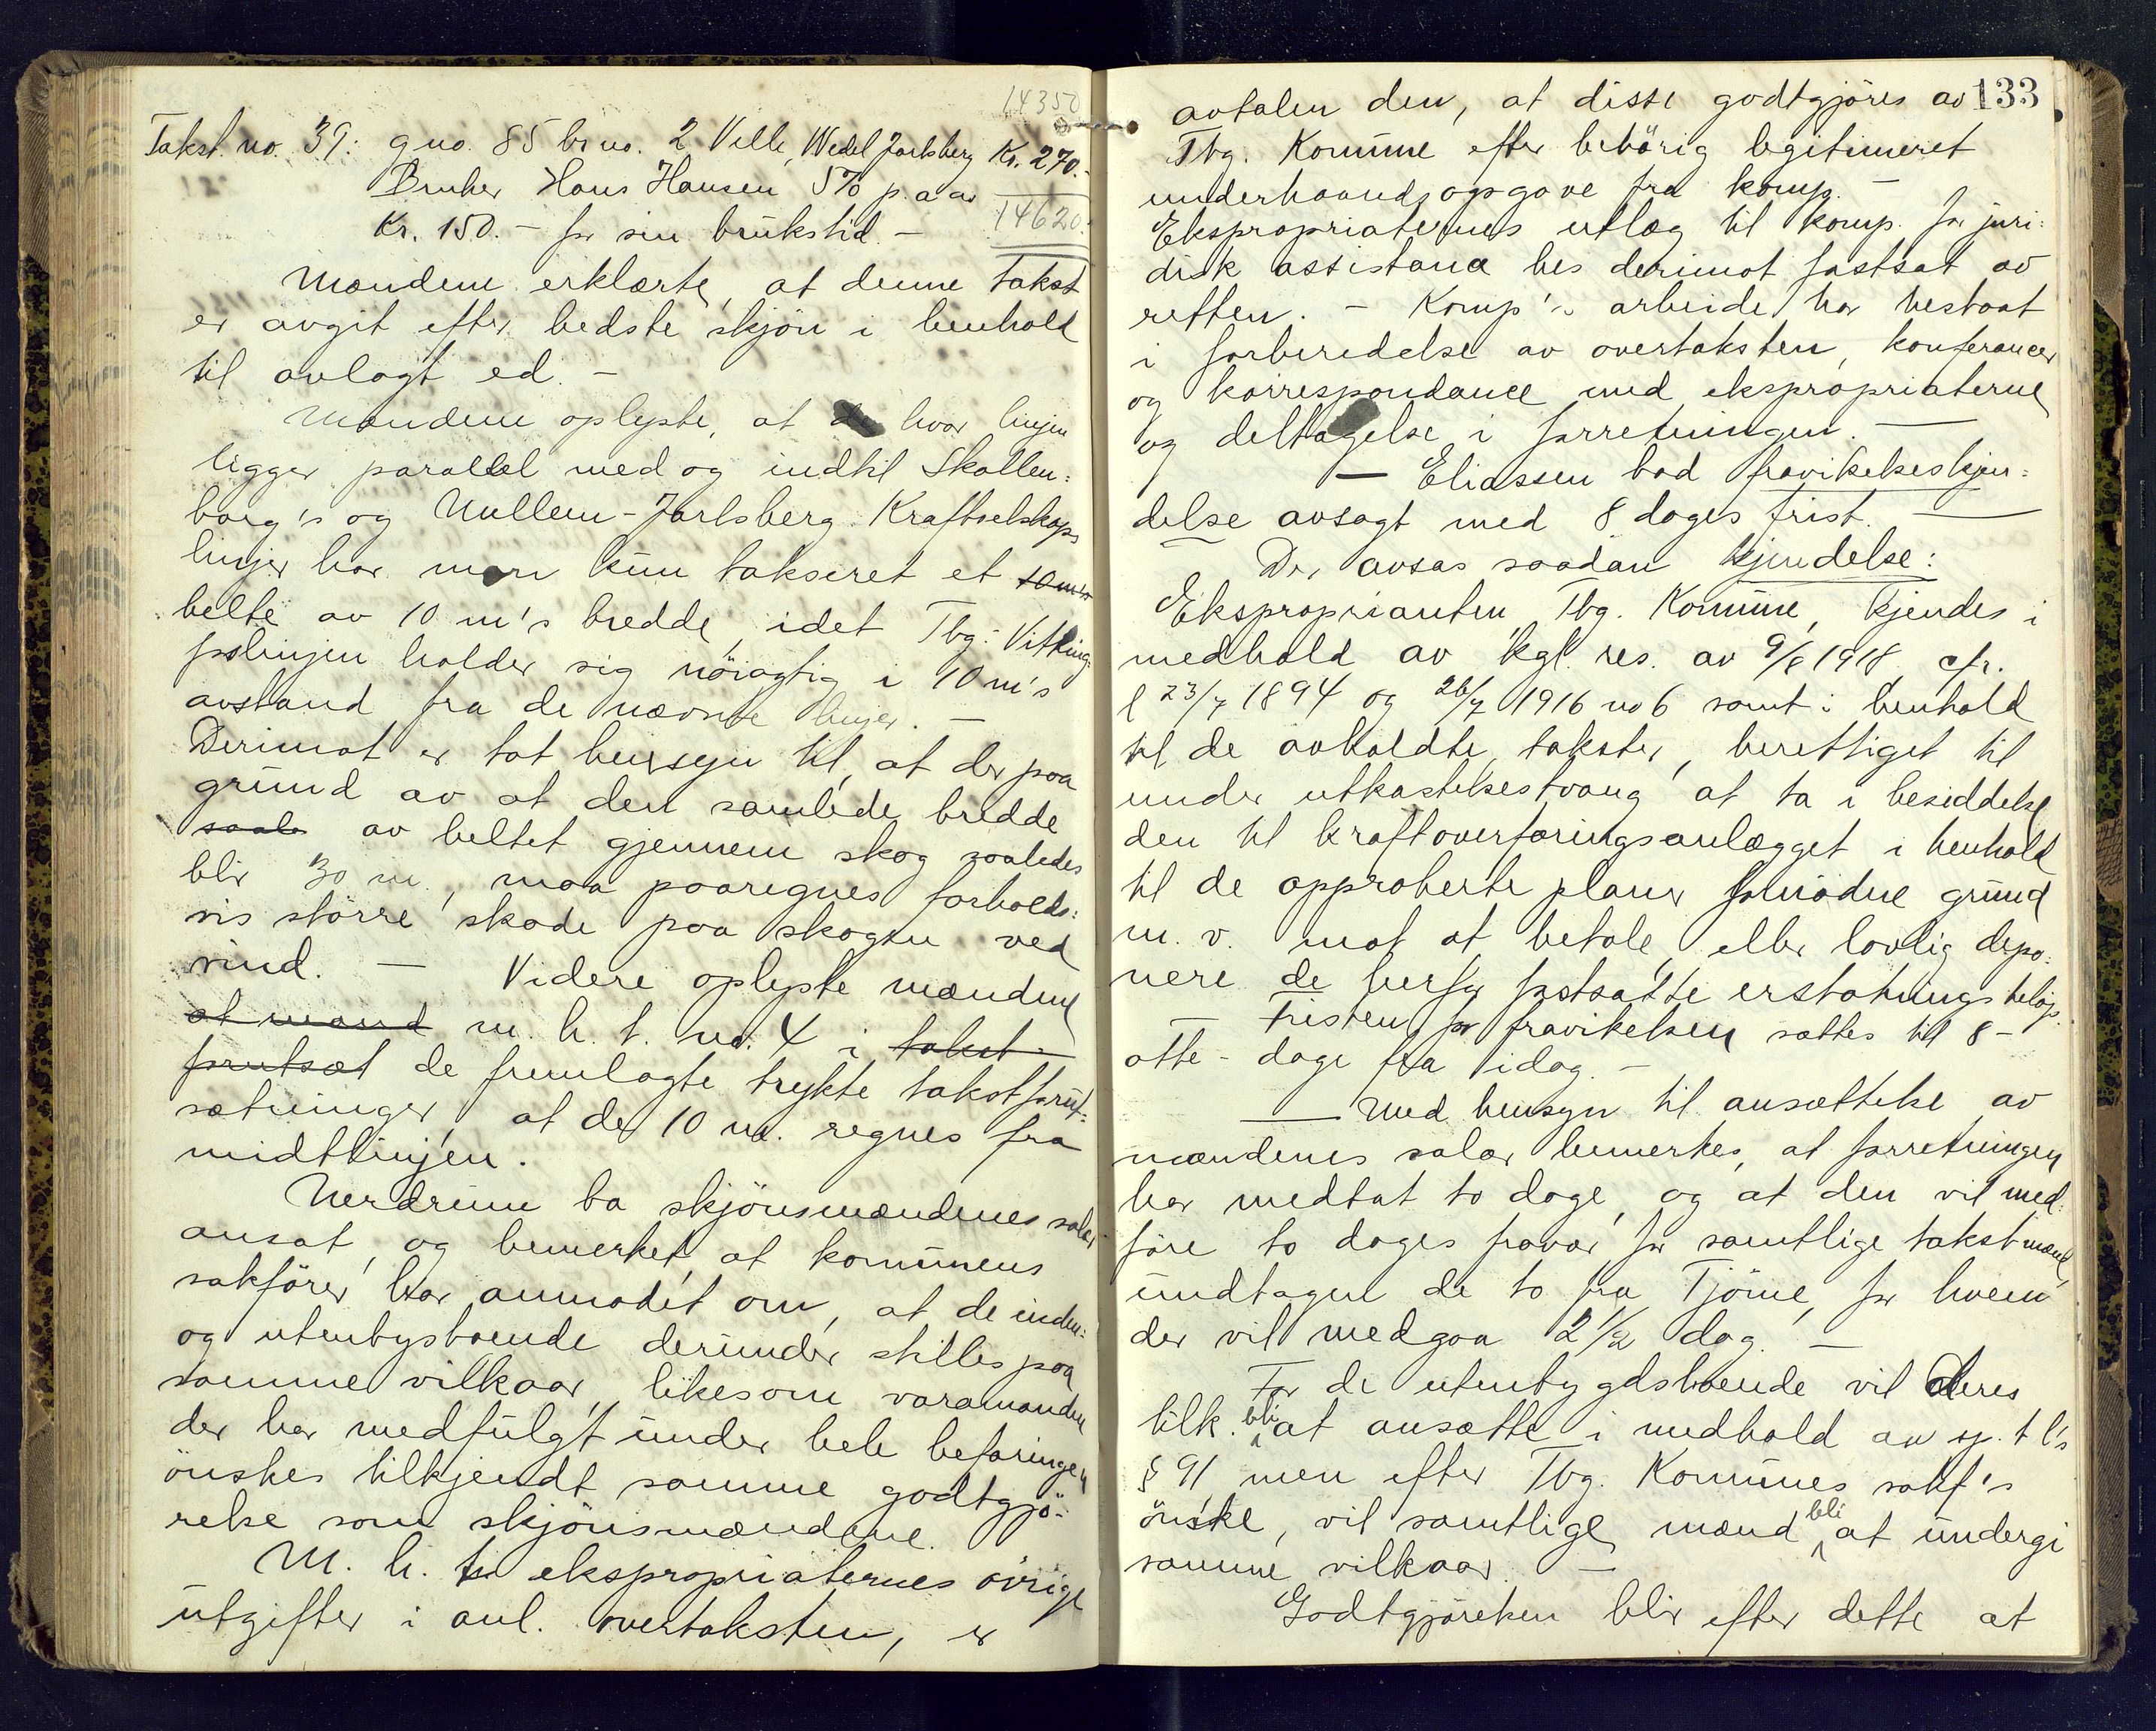 14350
Takst no. 39: gno. 85 br no. 2 Velle, Wedel Jarlsberg Kr. 270.-
Bruker Hans Hansen 5% p. a av
Kr. 150.- for sin brukstid.- 14620.-
Mændene erklærte, at denne takst
er avgit efter bedste skjön i henhold
til avlagt ed. -
Mændene oplyste, at hvor linjen
ligger parallel med og indtil Skallen=
borg's og Mullem-Jarlsberg Kraftselskaps
linjer har man kun takseret et
belte av 10 m's bredde, idet Tbg.-Vitking=
fsslinjen holder sig nöiagtig i 10 m's
avstand fra de nævnte linjer. -
Derimot er tat hensyn til, at der paa
grund av at den samlede bredde
saale av beltet gjennem skog saaledes
blir 30 m., maa paaregnes forholds=
vis större skade paa skogen ved
vind. - Videre oplyste mændene
at mænd m. h. t. no. 4 i takst=
forutsæt de fremlagte trykte takstforut=
sætninger, at de 10 m. regnes fra
midtlinjen.
Nerdrum ba skjönsmændenes salær
ansat, og bemerket, at kommunens
sakförer har anmodet om, at de inden=
og utenbysboende derunder stilles paa
samme vilkaar, likesom varamanden
der har medfulgt under hele befaringen
önskes tilkjendt samme godtgjö=
relse som skjönsmændene.
M. h. t. ekspropriaternes övrige
utgifter i anl. overtaksten, er
133
avtalen den, at disse godtgjöres av
Tbg. Kommune efter behörig legitimeret
underhaandsopgave fra komp. -
Ekspropriaternes utlæg til komp. for juri=
disk assistance bes derimot fastsat av
retten. - Komp's arbeide har bestaat
i forberedelse av overtaksten, konferancer
og korrespondance med ekspropriaterne
og deltagelse i forretningen. -
- Eliassen bad fravikelseskjen=
delse avsagt med 8 dages frist. -
Der avsas saadan kjendelse:
Eksproprianten, Tbg. Kommune, kjendes i
medhold av kgl. res. av 9/8 1918 cfr.
l 23/7 1894 og 26/7 1916 no 6 samt i henhold
til de avholdte takster, berettiget til
under utkastelsestvang at ta i besiddelse
den til kraftoverföringsanlægget i henhold
til de approberte planer fornödne grund
m. v. mot at betale eller lovlig depo=
nere de herfor fastsatte erstatningsbelöp.
- Fristen for fravikelsen sættes til 8 -
otte - dage fra idag. -
- Med hensyn til ansættelse av
mændenes salær bemerkes, at forretningen
har medtat to dage, og at den vil med=
före to dages fravær for samtlige takstmænd,
undtagen de to fra Tjöme, for hvem
der vil medgaa 2 1/2 dag. -
For de utenbygdsboende vil deres
tilk. bli at ansætte i medhold av sp. t l's
§ 91, men efter Tbg. Kommunes sakf's
önske, vil samtlige mænd bli at undergi
samme vilkaar. -
Godtgjörelsen blir efter dette at